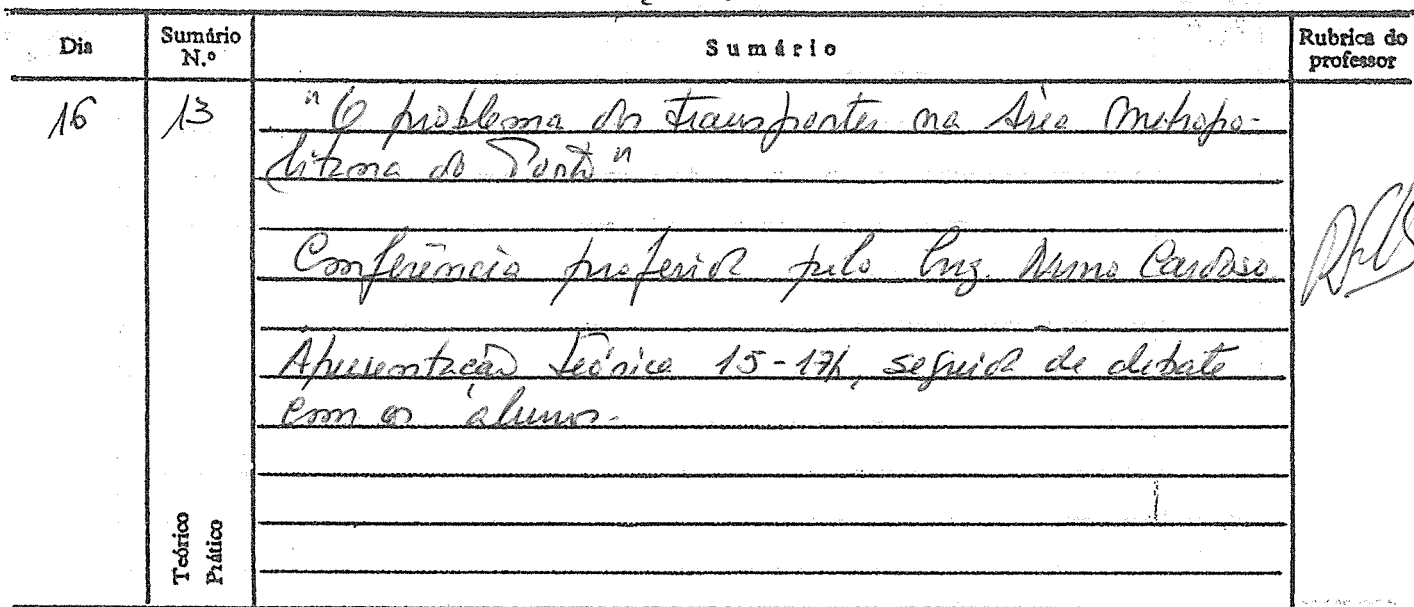 Dia
Sumário N.º
Sumário
Rubrica do professor
16
13
"O problema dos transportes na Área Metropo-
litana do Porto"
Conferência proferida pelo Eng. Nuno Cardoso
Apresentação teórica 15-17h, seguida de debate
com os alunos.
Teórico
Prático